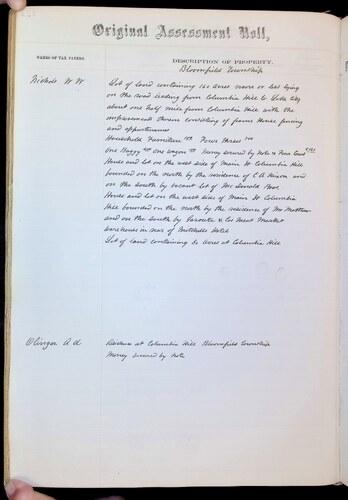 Original Assessment Roll,
NAMES OF TAX PAYERS.
DESCRIPTION OF PROPERTY.
Bloomfield Township
Nichols W W
Lot of land containing 160 acres more or less lying
on the road leading from Columbia Hill to Lake City
about one half mile from Columbia Hill with the
improvements thereon consisting of frame House fencing
and appurtenances
Household Furniture Four Horses
One Buggy one wagon Money secured by note &
House and lot on the west side of Main St Columbia Hill
bounded on the north by the residence of C A and
on the South by vacant lot of Mc
House and lot on the west side of Main St Columbia
Hill bounded on the north by the residence of Mr
and on the South by & Cos Meat Market
warehouse in rear of Hotel
Lot of land containing acres at Columbia Hill
Olinger A A
Residence at Columbia Hill Bloomfield Township
Money secured by note